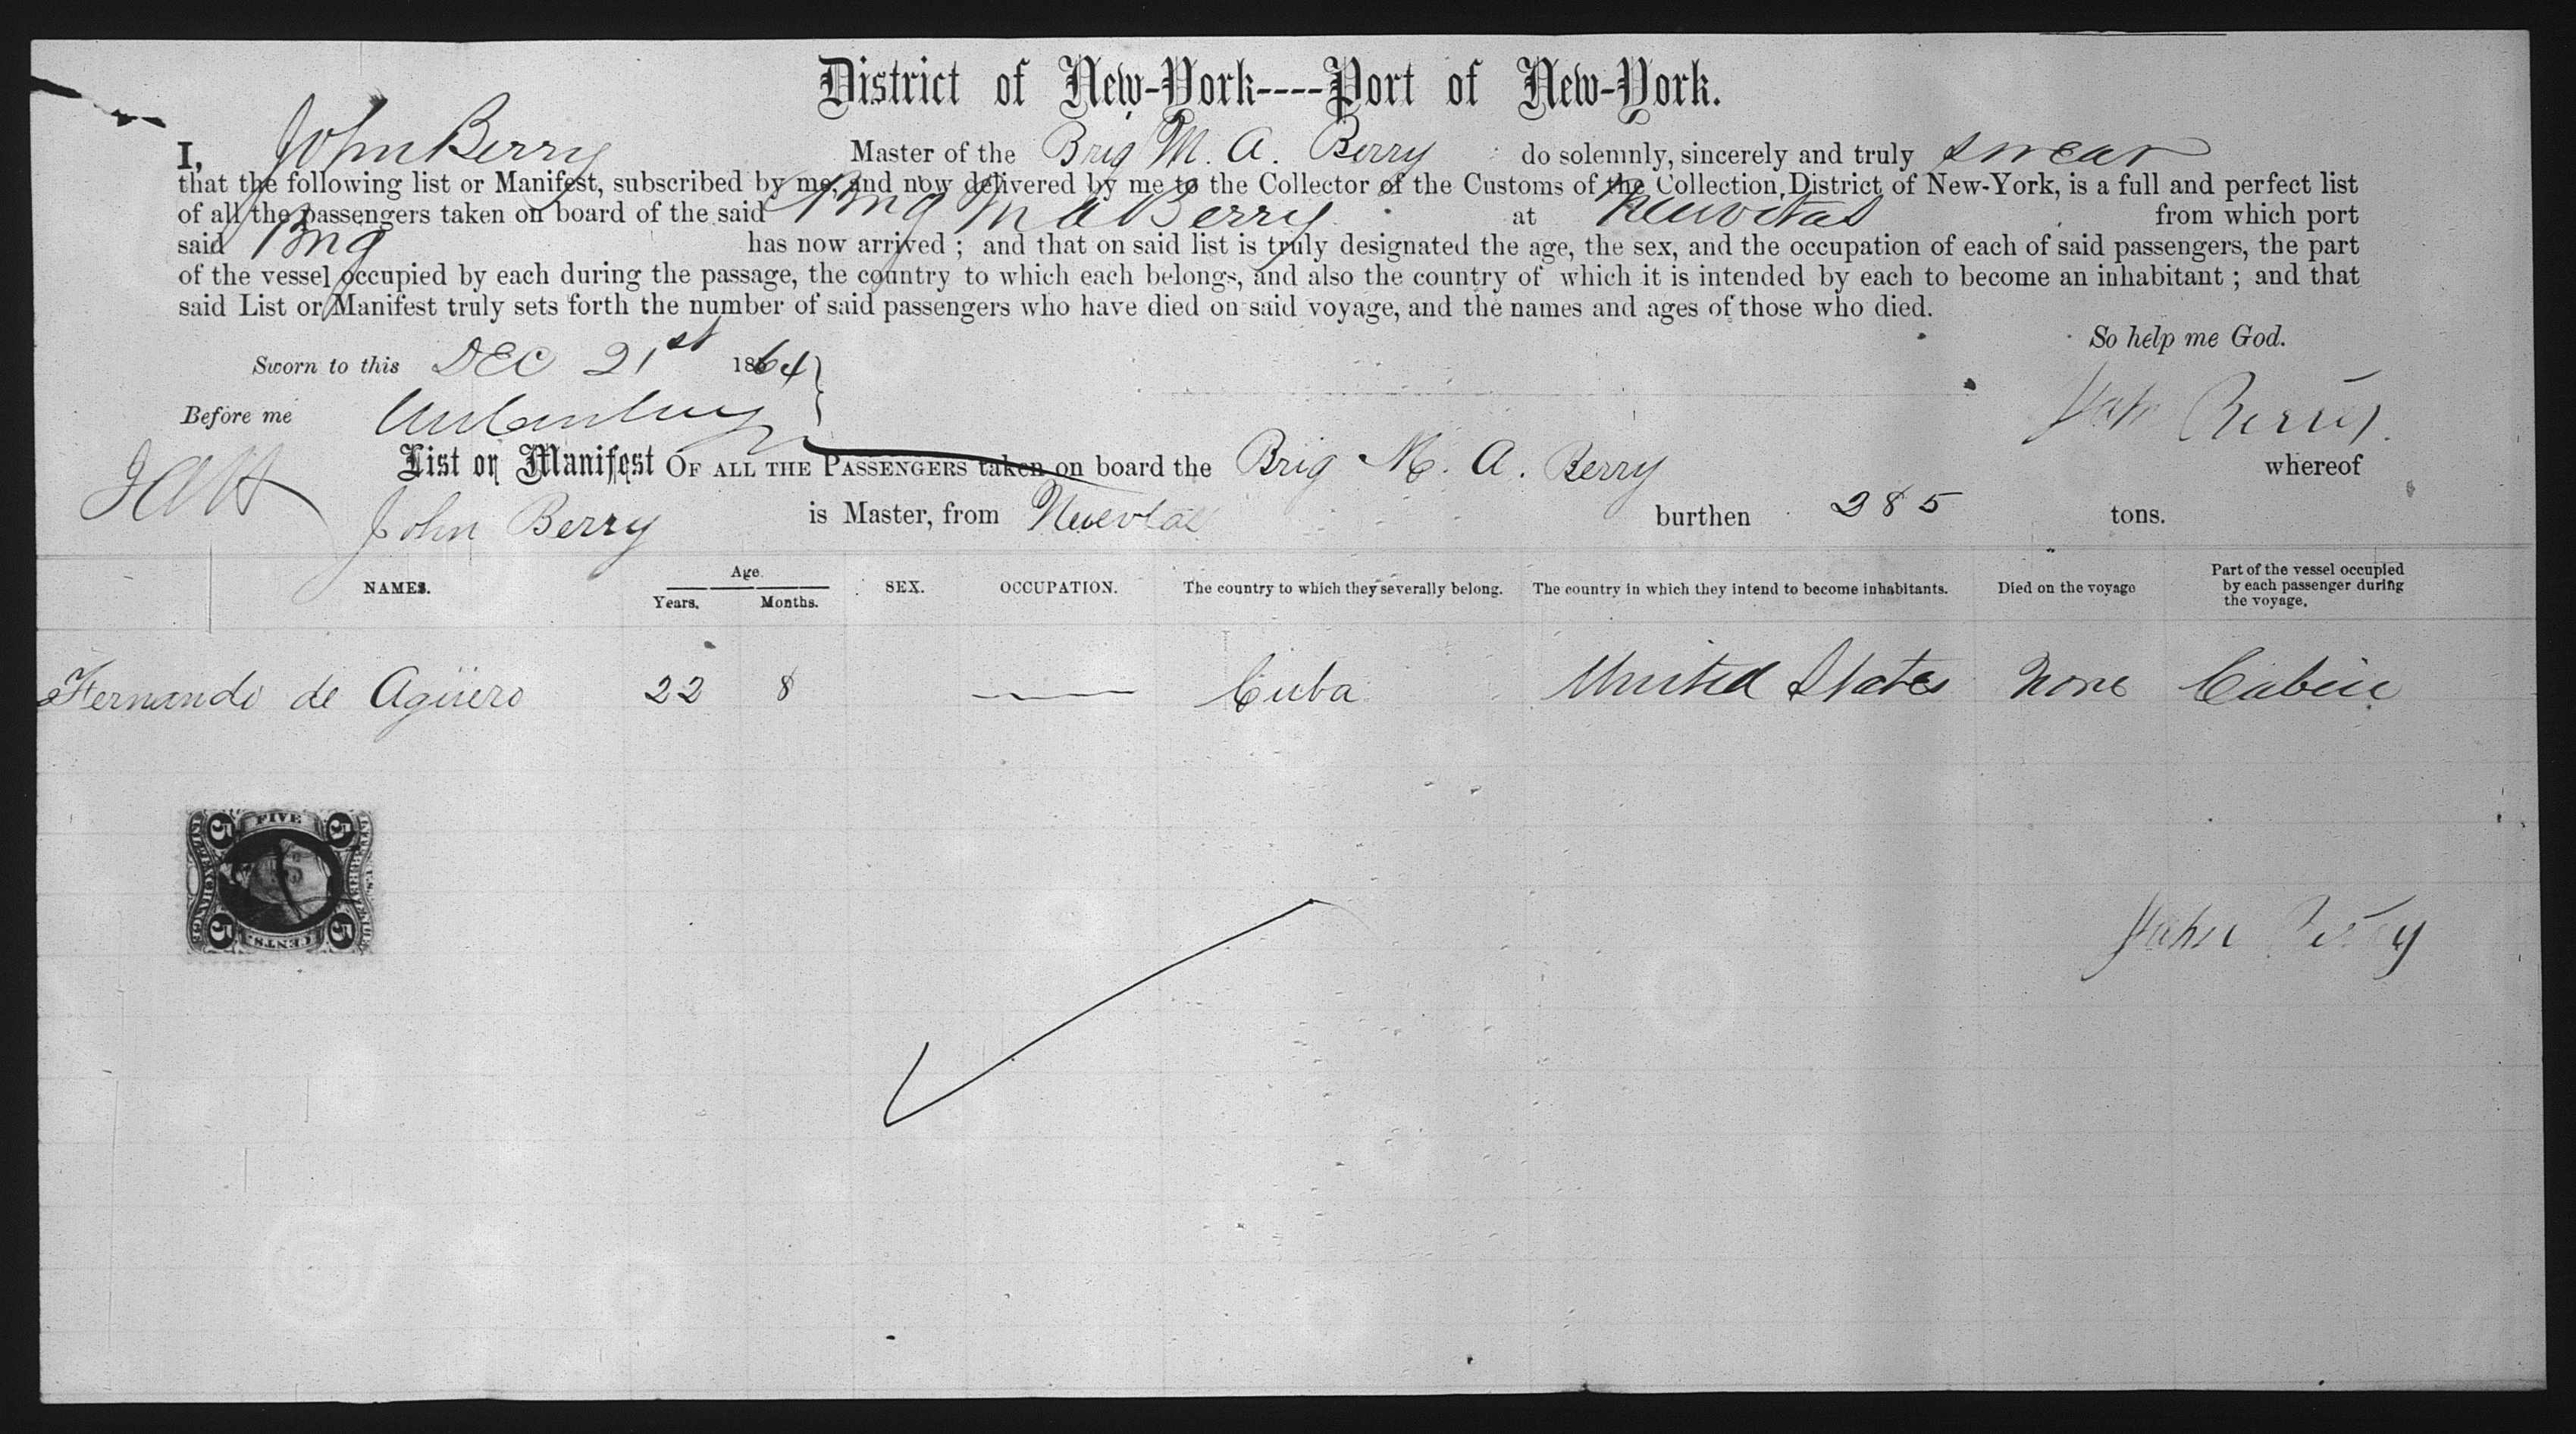 District of New-York----Port of New-York.
I, John Berry Master of the Brig M. A. Berry do solemnly, sincerely and truly swear
that the following list or Manifest, subscribed by me, and now delivered by me to the Collector of the Customs of the Collection District of New-York, is a full and perfect list
of all the passengers taken on board of the said Brig M A Berry at Nuevitas from which port
said Brig has now arrived ; and that on said list is truly designated the age, the sex, and the occupation of each of said passengers, the part
of the vessel occupied by each during the passage, the country to which each belongs, and also the country of which it is intended by each to become an inhabitant ; and that
said List or Manifest truly sets forth the number of said passengers who have died on said voyage, and the names and ages of those who died.
So help me God.
Sworn to this DEC 21st 1864
John Berry
Before me
List or Manifest OF ALL THE PASSENGERS taken on board the Brig M. A. Berry whereof
John Berry is Master, from burthen 285 tons.
NAMES. Age. Years. Months. SEX. OCCUPATION. The country to which they severally belong. The country in which they intend to become inhabitants. Died on the voyage Part of the vessel occupied
by each passenger during
the voyage.
Fernando de Agüero 22 8 — Cuba United States None Cabin
FIVE
5 5
INTER. EXCHANGE
U.S. INTER. REV.
5 5
CENTS.
John Berry